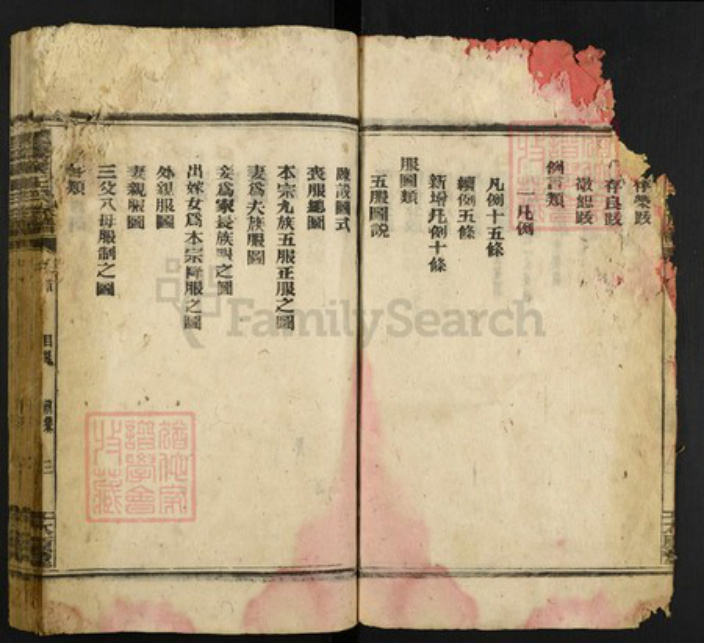 梓榮跋
存良跋
敬紀跋
例言類
一凡例
凡例十五條
續例五條
新增凡例十條
服圖類
五服圖說
陳設圖式
喪服總圖
本宗九族五服正服之圖
妻為夫族服圖
妾為家長族服之圖
出嫁女為本宗降服之圖
外親服圖
妻親服圖
三父八母服制之圖
目錄
三
FamilySearch